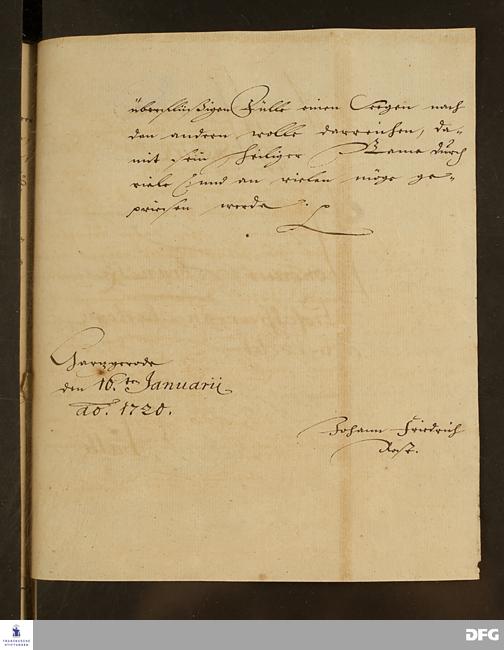 überflüßigen Fülle einen Seegen nach
den andern wolle darreichen, da-
mit sein heiliger Name durch
viele und an vielen möge ge-
priesen werde
Harzgerode
den 16.ten Januarii
ao. 1720.
Johann Friedrich
FRANCKESCHE
STIFTUNGEN
DFG